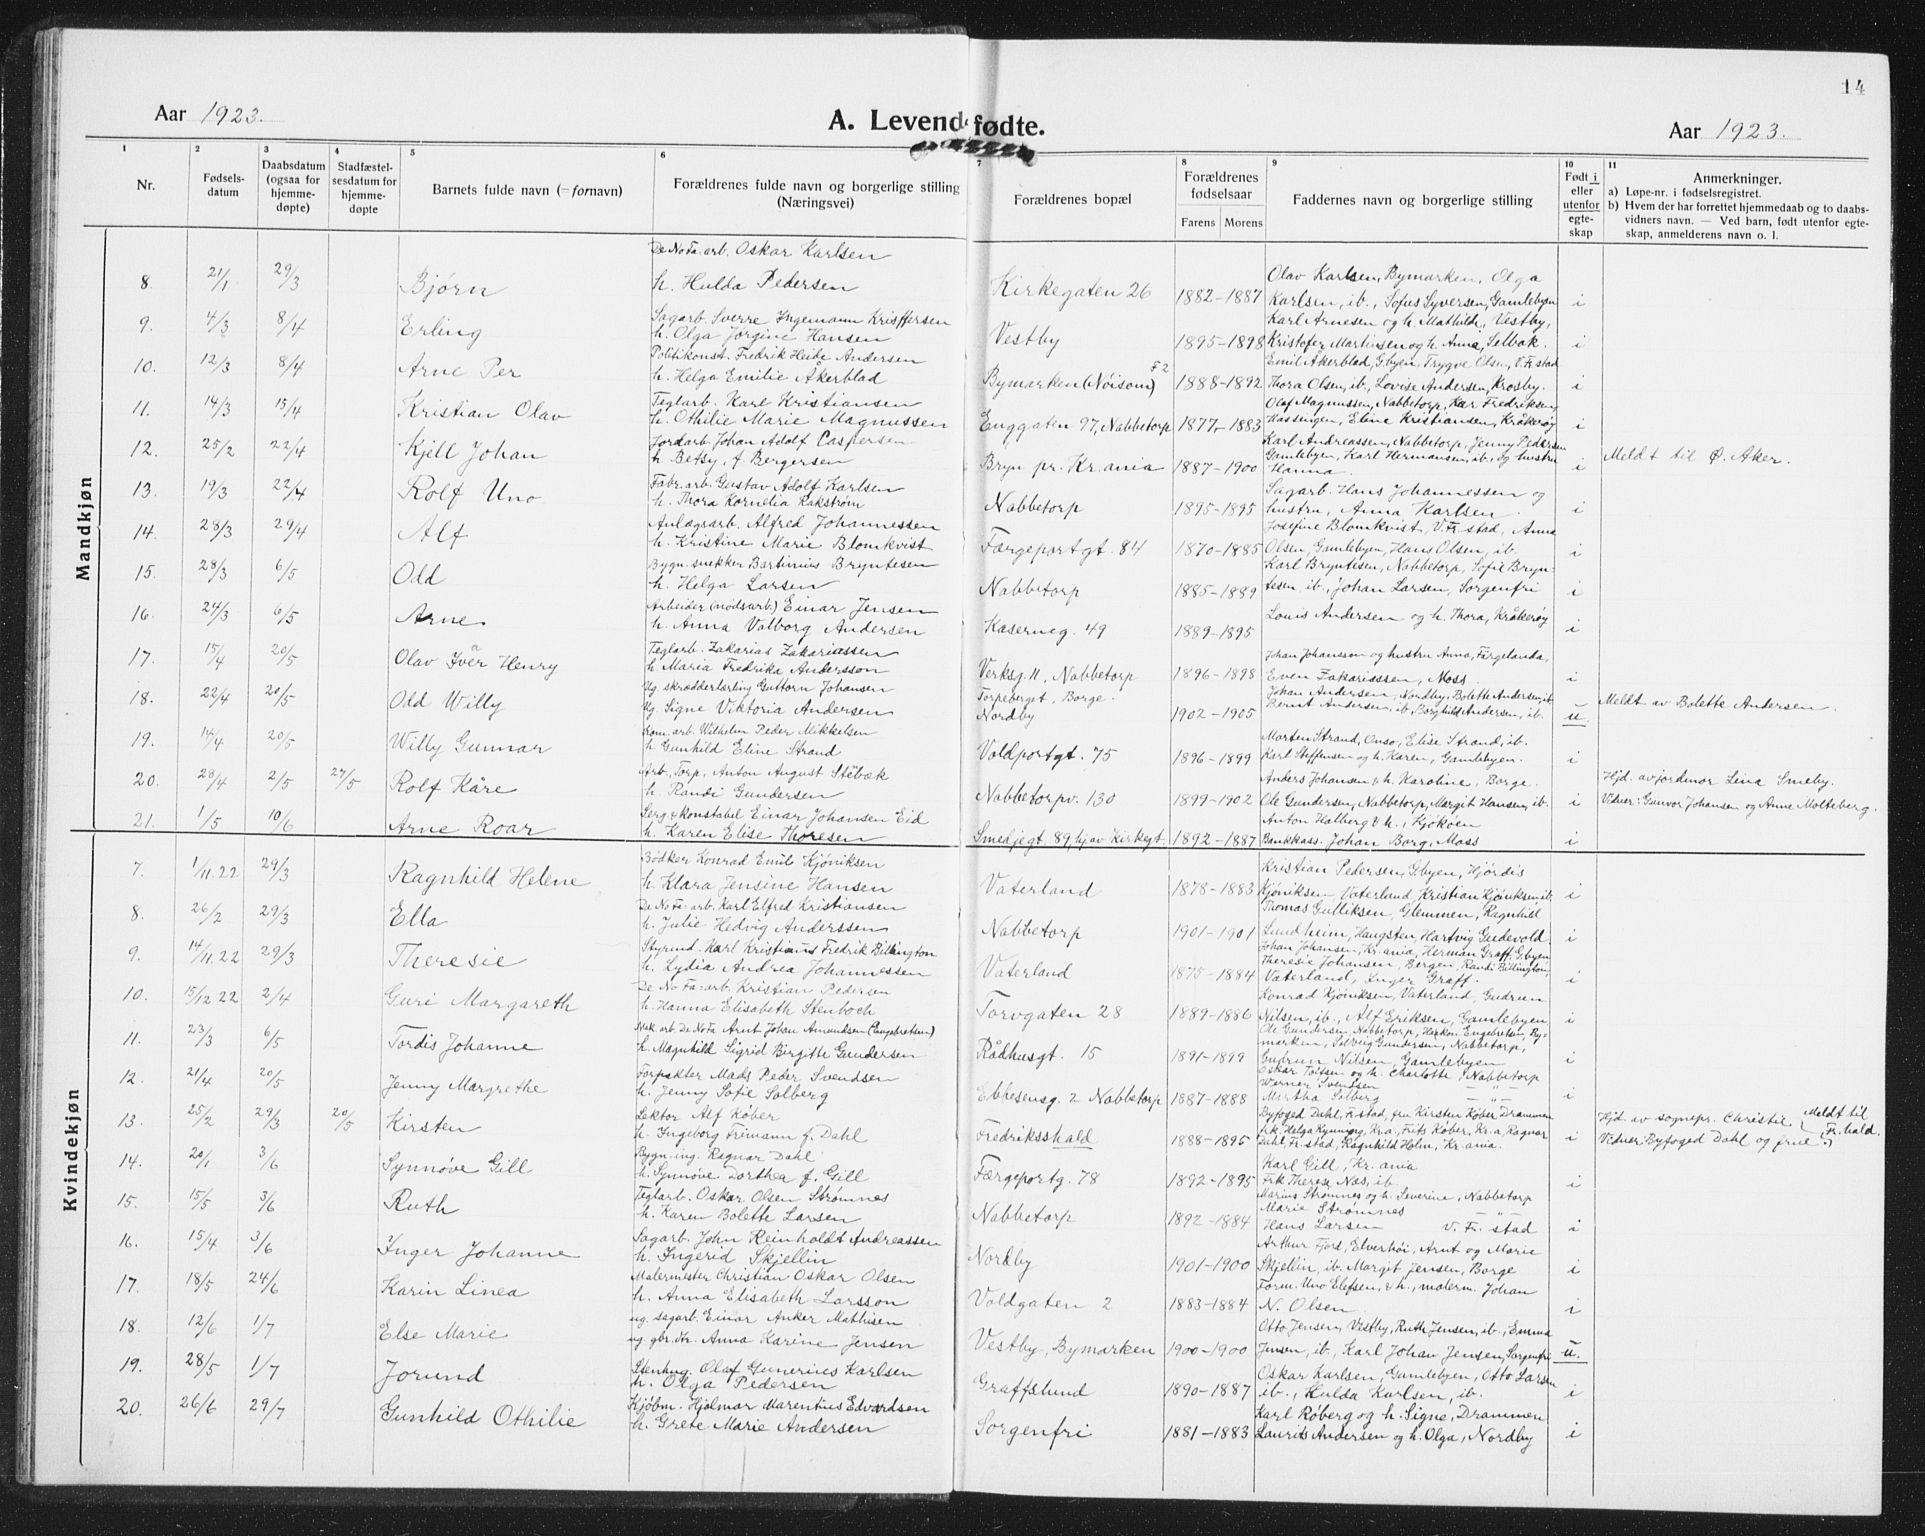 14
Aar 1923.
A. Levendefødte.
Aar 1923.
1 2 3 4 5 6 7 8 9 10 11
Nr.
Fødsels-datum
Daabsdatum (ogsaa for hjemme-døpte)
Stadfæstel-sesdatum for hjemme-døpte
Barnets fulde navn (= fornavn)
Forældrenes fulde navn og borgerlige stilling (Næringsvei)
Forældrenes bopæl
Forældrenes fødselsaar
Farens Morens
Faddernes navn og borgerlige stilling
Født i eller utenfor egte-skap
Anmerkninger.
a) Løpe-nr. i fødselsregistret.
b) Hvem der har forrettet hjemmedaab og to daabs-
vidners navn. — Ved barn, født utenfor egte-
skap, anmelderens navn o. l.
Mandkjøn
De No Fa. arb. Oskar Karlsen
8. 21/1 29/3 Bjørn h. Hulda Pedersen Kirkegaten 26 1882-1887 Olav Karlsen, Bymarken, Olga
Karlsen, ib., Sofus Syversen, Gamlebyen i
9. 4/3 8/4 Erling Sagarb. Sverre Ingemann Kristffersen
h. Olga Jørgine Hansen Vestby 1895-1898 Karl Arnesen og h. Mathilde, Vestby,
Kristofer Martinsen og h. Anna, Selbak. i
10. 12/3 8/4 Arne Per Politikonst. Fredrik Heide Andersen
h. Helga Emilie Akerblad Bymarken (Nöisom) F2 1888-1892 Emil Akerblad, Gbyen, Trygve Olsen, V. Fr.stad
Thora Olsen, ib., Lovise Andersen, Krosby. i
11. 14/3 15/4 Kristian Olav Teglarb. Karl Kristiansen
h. Othilie Marie Magnussen Enggaten 97, Nabbetorp 1877-1883 Olaf Magnussen, Nabbetorp, Kar Fredriksen,
Hassingen, Eline Kristiansen, Kråkerøy i
12. 25/2 22/4 Kjell Johan Jordarb. Johan Adolf Caspersen
h. Betsy, f. Bergersen Bryn pr. Kr.ania 1887-1900 Karl Andreassen, Nabbetorp, Jenny Pedersen
Gamlebyen, Karl Hermansen, ib., og hustru
Hanna. i Meldt til Ø. Aker.
13. 19/3 22/4 Rolf Uno Fabr. arb. Gustav Adolf Karlsen
h. Thora Kornelia Rakstrøm Nabbetorp 1895-1895 Sagarb. Hans Johannessen og
hustru, Anna Karlsen. i
14. 28/3 29/4 Alf Anlægsarb. Alfred Johannessen
h. Kristine Marie Blomkvist Færgeportgt. 84 1870-1885 Josefine Blomkvist, V. Fr.stad, Anna
Olsen, Gamlebyen, Hans Olsen, ib. i
15. 28/3 6/5 Old Bygn. snekker Bartinius Bryntesen
h. Helga Larsen Nabbetorp 1885-1889 Karl Bryntesen, Nabbetorp, Sofie Bryn-
tesen ib., Johan Larsen, Sorgenfri i
16. 24/3 6/5 Arne Arbeider (nödsarb.) Einar Jensen
h. Anna Valborg Andersen Kaserneg. 49 1889-1895 Louis Andersen og h. Thora, Kråkerøy i
17. 15/4 20/5 Olav Iver Henry Teglarb. Zakarias Zakariassen
h. Maria Fredrika Andersson Verksg. 11, Nabbetorp 1896-1898 Johan Johansson og hustru Anna, Färgelanda,
Even Zakarisssen, Moss. i
18. 22/4 20/5 Old Willy Ug. skrædderlærling Guttorm Johansen
Ug. Signe Viktoria Andersen Torpeberget, Borge.
Nordby 1902-1905 Johan Andersen, Nordby, Bolette Andersen, ib.
Bernt Andersen, ib. Borghild Andersen, ib. u. Meldt av Bolette Andersen.
19. 14/4 20/5 Willy Gunnar Kom. arb. Wilhelm Peder Mikkelsen
h. Gunhild Eline Strand Voldportgt. 75 1896-1899 Morten Strand, Onsø, Elise Strand, ib.
Karl Steffensen og h. Karen, Gamlebyen. i
20. 28/4 2/5 27/5 Rolf Kåre Arb., Torp, Anton August Stëbæk
h. Randi Gundersen Nabbetorpv. 130 1899-1902 Anders Johansen & h. Karoline, Borge.
Ole Gundersen, Nabbetorp, Margit Hansen, ib. i Hjd. av jordmor Lina Smeby.
Vidner: Gunvor Johansen og Anne Molteberg.
21. 1/5 10/6 Arne Roar Serg. & konstabel Einar Johansen Eid
h. Karen Elise Thoresen Smedjegt. 89, hj. av Kirkegt. 1892-1887 Anton Halberg & h., Kjøkøen
Bankkass. Johan Borg, Moss i
Kvindekjøn
7. 1/11.22 29/3 Ragnhild Helene Bödker Konrad Emil Kjöniksen
h. Klara Jensine Hansen Vaterland 1878-1883 Kristian Pedersen, Gbyen, Hjördis
Kjöniksen, Vaterland, Kristian Kjöniksen ib. i
8. 26/2 29/3 Ella De No Fa-arb. Karl Elfred Kristiansen
h. Julie Hedvig Anderssen Nabbetorp 1901-1901 Thomas Gulliksen, Glemmen, Ragnhild
Lundheim, Haugsten, Hartvig Gudevold. i
9. 14/11.22 29/3 Theresie Styrmd. Karl Kristianus Fredrik Billington
h. Lydia Andrea Johannessen Vaterland 1875-1884 Johan Johansen, Kr.ania, Herman Graff, Gbyen
Theresie Johansen, Bergen, Randi Billington,
Vaterland, Inger Graff. i
10. 15/12 22 2/4 Guri Margareth De No Fa-arb. Kristian Pedersen
h. Hanna Elisabeth Stenboch Torvgaten 28 1889-1886 Konrad Kjöniksen, Vaterland, Gudrun
Nilsen, ib., Alf Eriksen, Gamlebyen i
11. 23/3 6/5 Tordis Johanne Mek. arb. De No Fa Arnt Johan Amundsen (Engebretsen)
h. Magnhild Sigrid Birgitte Gundersen Rådhusgt. 15 1891-1899 Ole Gundersen, Nabbetorp, Håkon Engebretsen By-
marken, Solveig Gundersen, Nabbetorp,
Gudrun Nilsen, Gamlebyen i
12. 21/4 20/5 Jenny Margrethe Forpakter Mads Peder Svendsen
h. Jenny Sofie Solberg Ebbesensg. 2 Nabbetorp 1887-1888 Oskar Toltsen og h. Charlotte, Nabbetorp
Werner Svendsen
Martha Solberg — " — i
13. 25/2 29/3 20/5 Kirsten Lektor Alf Køber
h. Ingeborg Frimann f. Dahl Fredrikshald 1888-1895 Byfoged Dahl, Fr.stad, fru Kirsten Køber Drammen
frk. Helga Kynning, Kr.a, Frits Køber, Kr.a, Ragnar
Dahl, Fr.stad, Ragnhild Holm, Kr. ania. i Hjd. av sognepr. Christie Meldt til
Vidner: Byfoged Dahl og frue Fr.hald.
14. 20/1 3/6 Synnøve Gill Bygn. ing. Ragnar Dahl
h. Synnøve Dorthea f. Gill Færgeportg. 78 1892-1895 Karl Gill, Kr.ania
Frk Therese Næs, ib. i
15. 15/5 3/6 Ruth Teglarb. Oskar Olsen Strømnes
h. Karen Bolette Larsen Nabbetorp 1892-1884 Marius Strømnes og h. Severine, Nabbetorp
Marie Strømnes — " —
Hans Larsen V. Fr. stad i
16. 15/4 3/6 Inger Johanne Sagarb. John Reinholdt Andreassen
h. Ingerid Skjellin Nordby 1901-1900 Arthur Fjord, Elverhöi, Arnt og Marie
Skjellin, ib. Margit Jensen, Borge i
17. 18/5 24/6 Karin Linea Malermester Christian Oskar Olsen
h. Anna Elisabeth Larsson Voldgaten 2 1883-1884 Form. Uno Elefsen, & h., malerm. Johan
N. Olsen. i
18. 12/6 1/7 Else Marie ug. sagarb. Einar Anker Mathisen
ug. gbr.dtr. Anna Karine Jensen Vestby, Bymarken 1900-1900 Otto Jensen, Vestby, Ruth Jensen, ib., Emma
Jensen, ib., Karl Johan Jensen, Sorgenfri u.
19. 28/5 1/7 Jorund Stenhug. Olaf Gunerius Karlsen
h. Olga Pedersen Graffslund 1890-1887 Oskar Karlsen, Gamlebyen, Otto Larsen
ib., Hulda Karlsen, ib. i
20. 26/6 29/7 Gunhild Othilie Kjöbm. Hjalmar Marentius Edvardsen
h. Grete Marie Andersen Sorgenfri 1881-1883 Karl Røberg og h. Signe, Drammen
Laurits Andersen og h. Olga, Nordby i